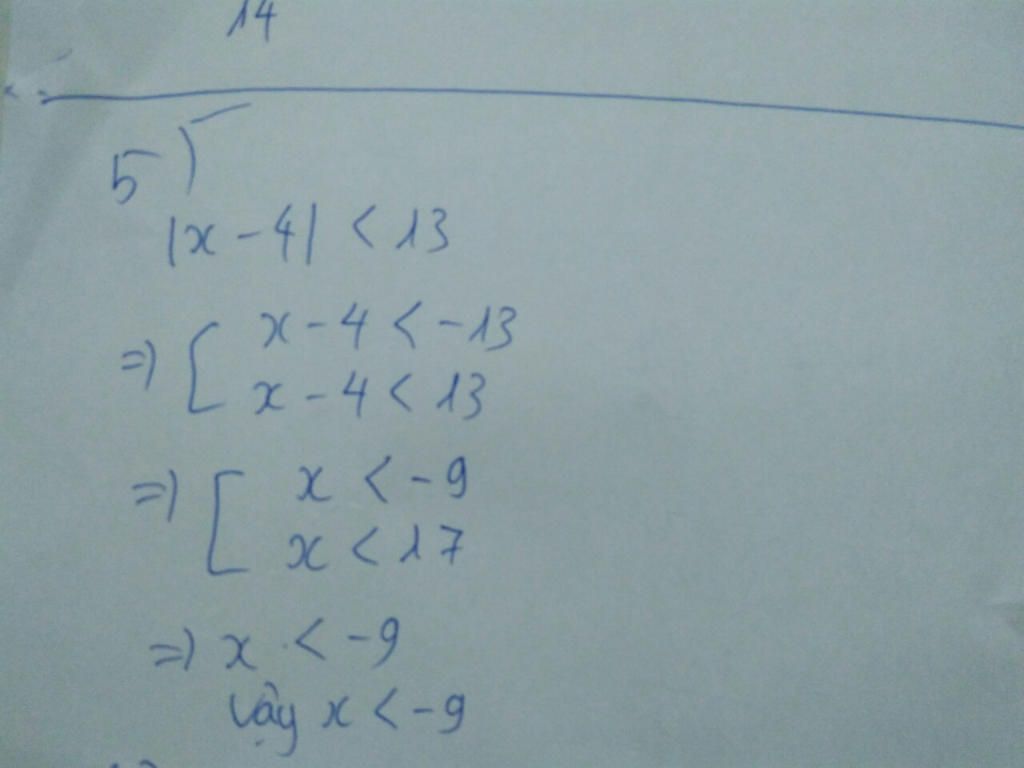 14
5)
|x - 4| < 13
=> [ x - 4 < -13
x - 4 < 13
=> [ x < -9
x < 17
=> x < -9
Vậy x < -9